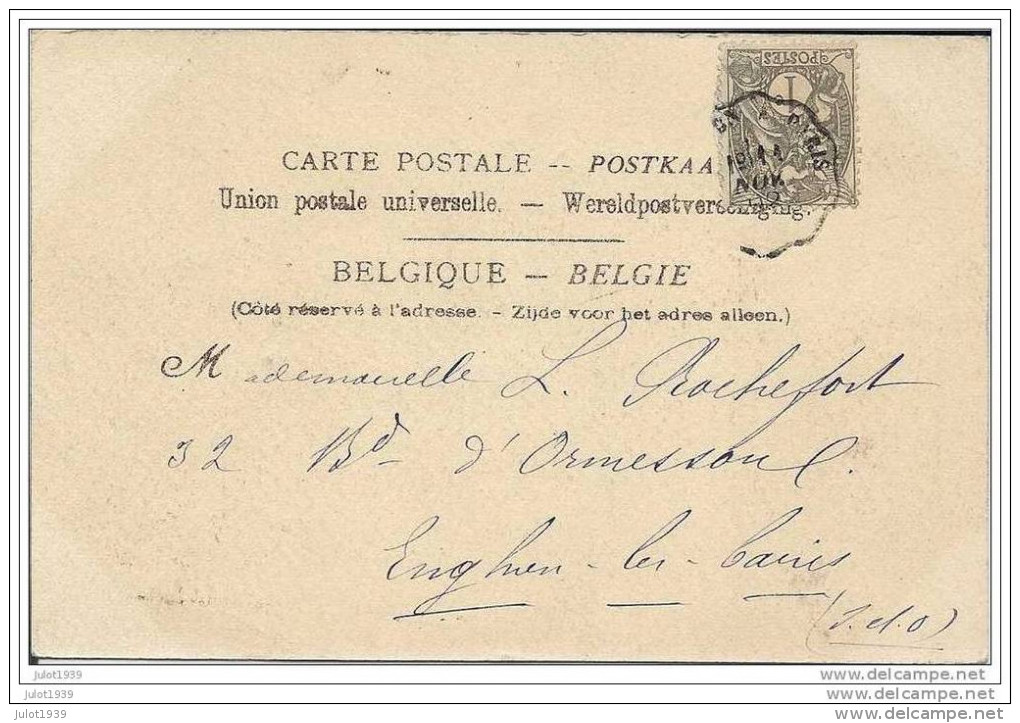 POSTES
1
PARIS
11
NOV
CARTE POSTALE -- POSTKAA
Union postale universelle. — Wereldpostvereeniging.
BELGIQUE — BELGIE
(Côté réservé à l'adresse. - Zijde voor het adres alleen.)
Mademoiselle L. Rochefort
32 Bd d'Ormesson
Enghien-les-bains
(S.et.O)
julot1939 www.delcampe.net
julot1939 www.delcampe.net
julot1939 www.delcampe.net